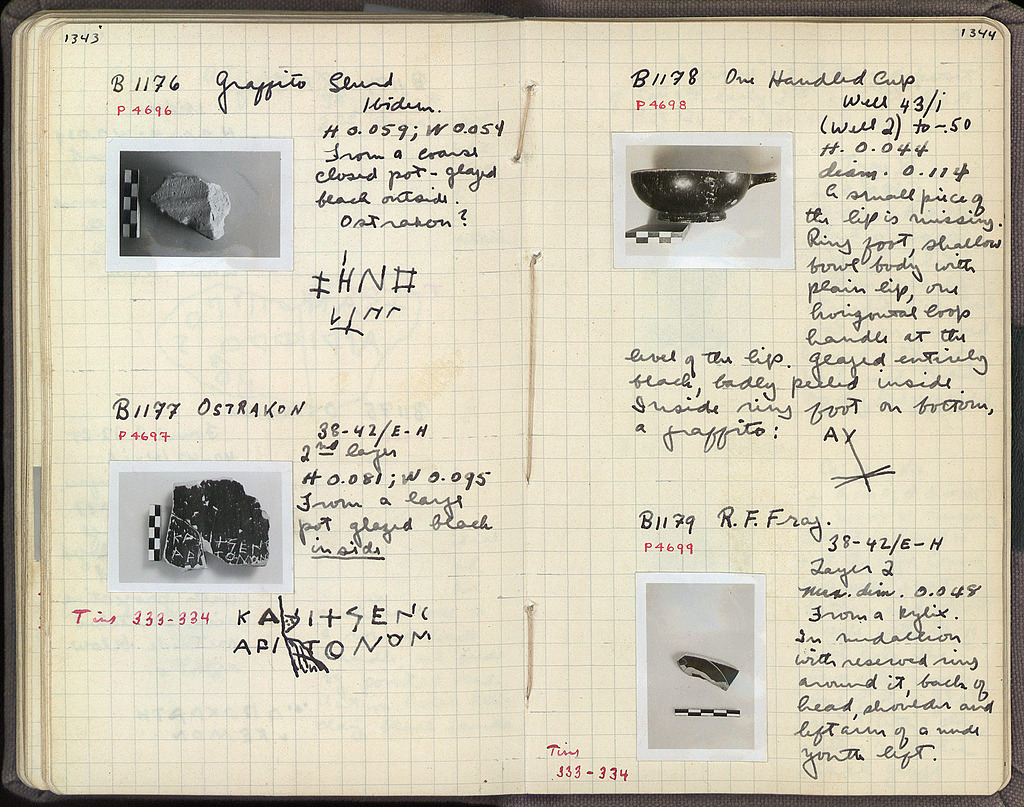 1343
B 1176 Graffito Sherd
P 4696
Ibidem.
H 0.059; W 0.054
From a coarse
closed pot - glazed
black outside.
Ostrakon?
B 1177 OSTRAKON
P 4697
38-42/E-H
2nd layer
H 0.081; W 0.095
From a large
pot glazed black
inside
Tins 333-334
1344
B 1178 One Handled Cup
P 4698
Well 43/1
(Well 2) to -.50
H. 0.044
diam. 0.114
A small piece of
the lip is missing.
Ring foot, shallow
bowl body with
plain lip, one
horizontal loop
handle at the
level of the lip. Glazed entirely
black, badly peeled inside.
Inside ring foot on bottom,
a graffito:
B 1179 R. F. Frag.
P 4699
38-42/E-H
Layer 2
Max. dim. 0.048
From a kylix.
In medallion
with reserved ring
around it, back of
head, shoulder and
left arm of a nude
youth left.
Tins
333-334